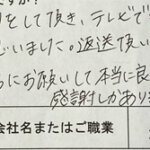 すか？
をして頂き、テレビで
いました。返送頂い
らにお願いして本当に良
感謝しかあり
会社名またはご職業